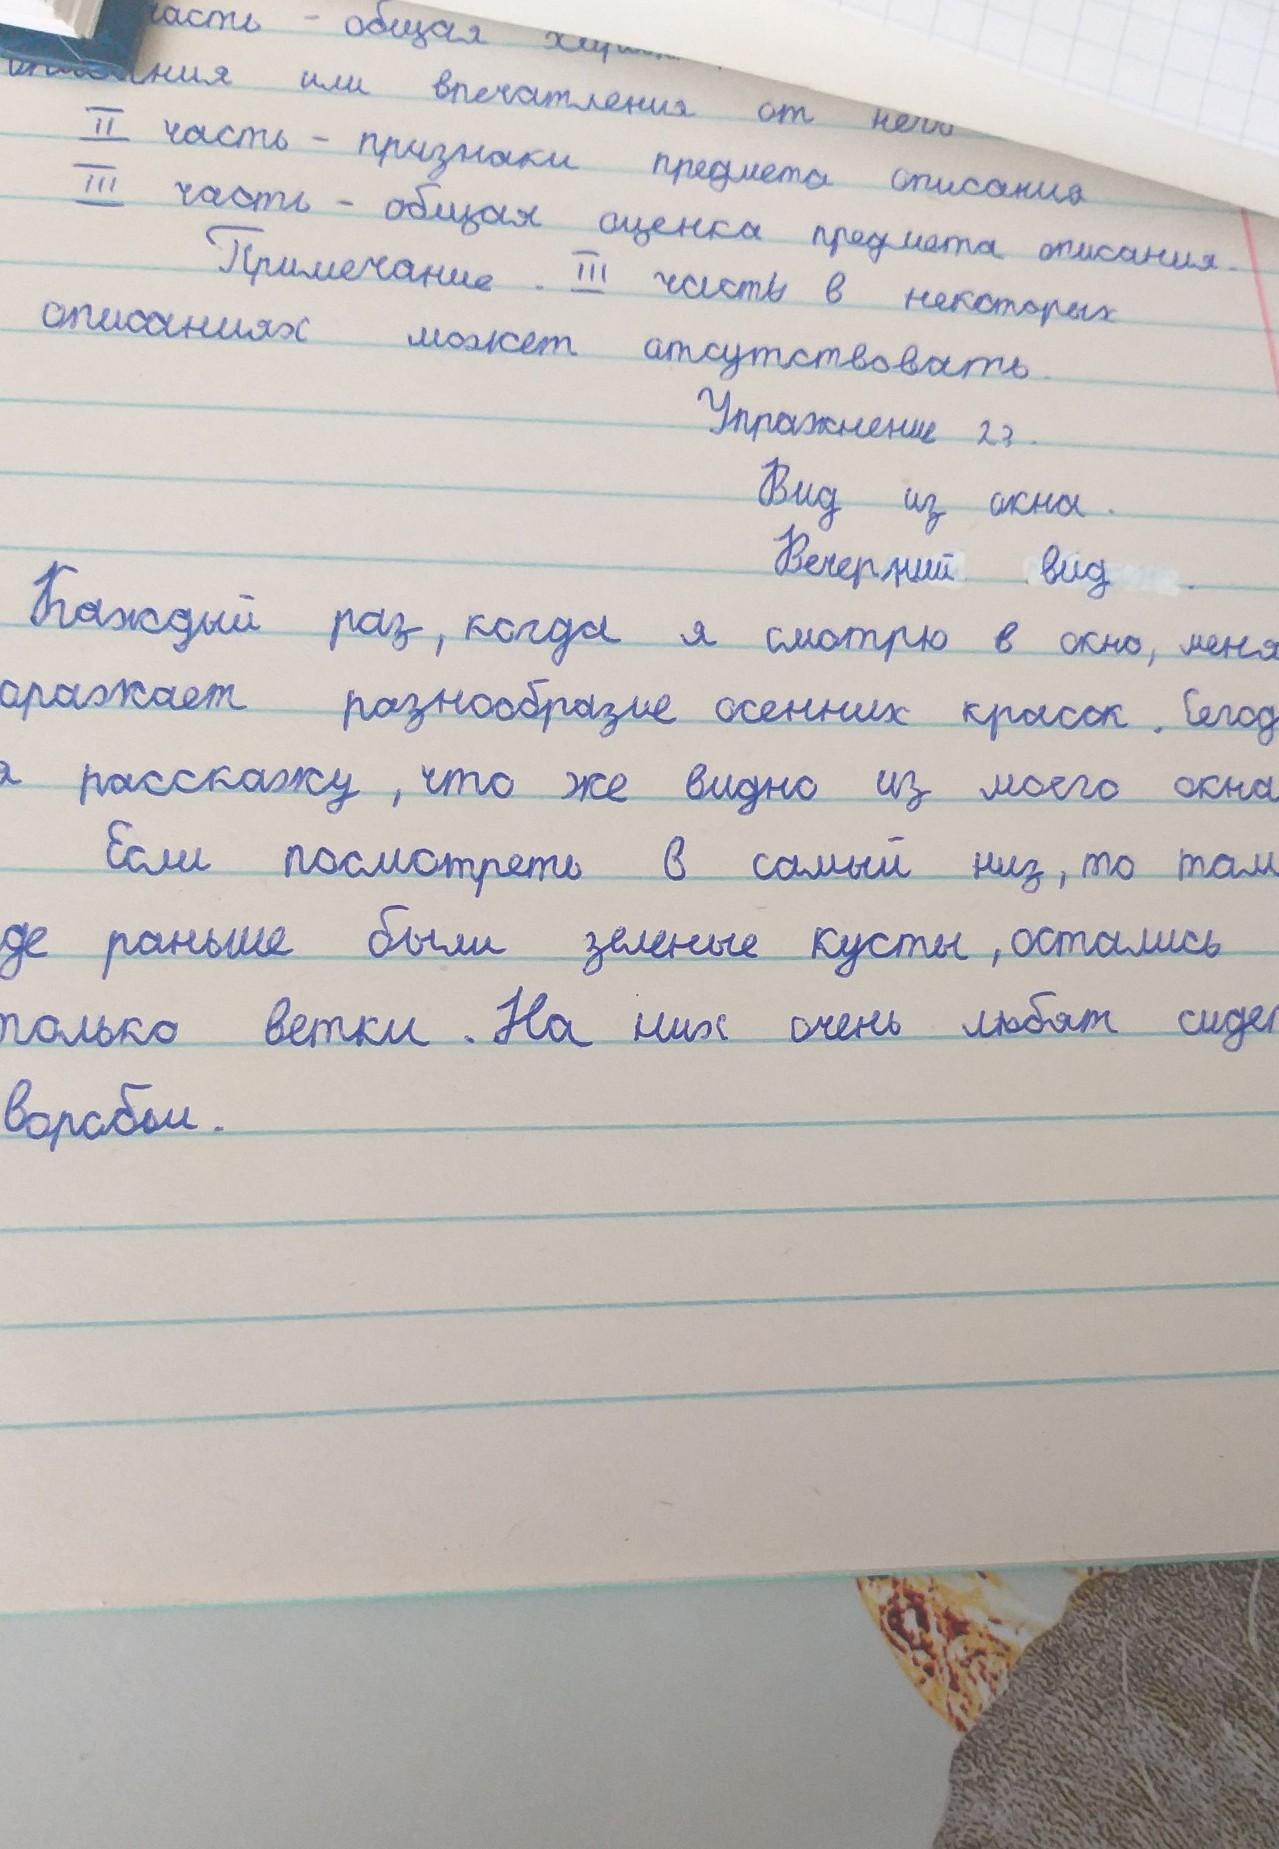 часть - общая
или впечатления от него
II часть - признаки предмета описания
III часть - общая оценка предмета описания.
Примечание. III часть в некоторых
описаниях может отсутствовать.
Упражнение 23.
Вид из окна.
Вечерний вид.
Каждый раз, когда я смотрю в окно, меня
оражает разнообразие осенних красок. Сегод
я расскажу, что же видно из моего окна
Если посмотреть в самый низ, то там
де раньше были зеленые кусты, остались
только ветки. На них очень любят сидет
воробьи.